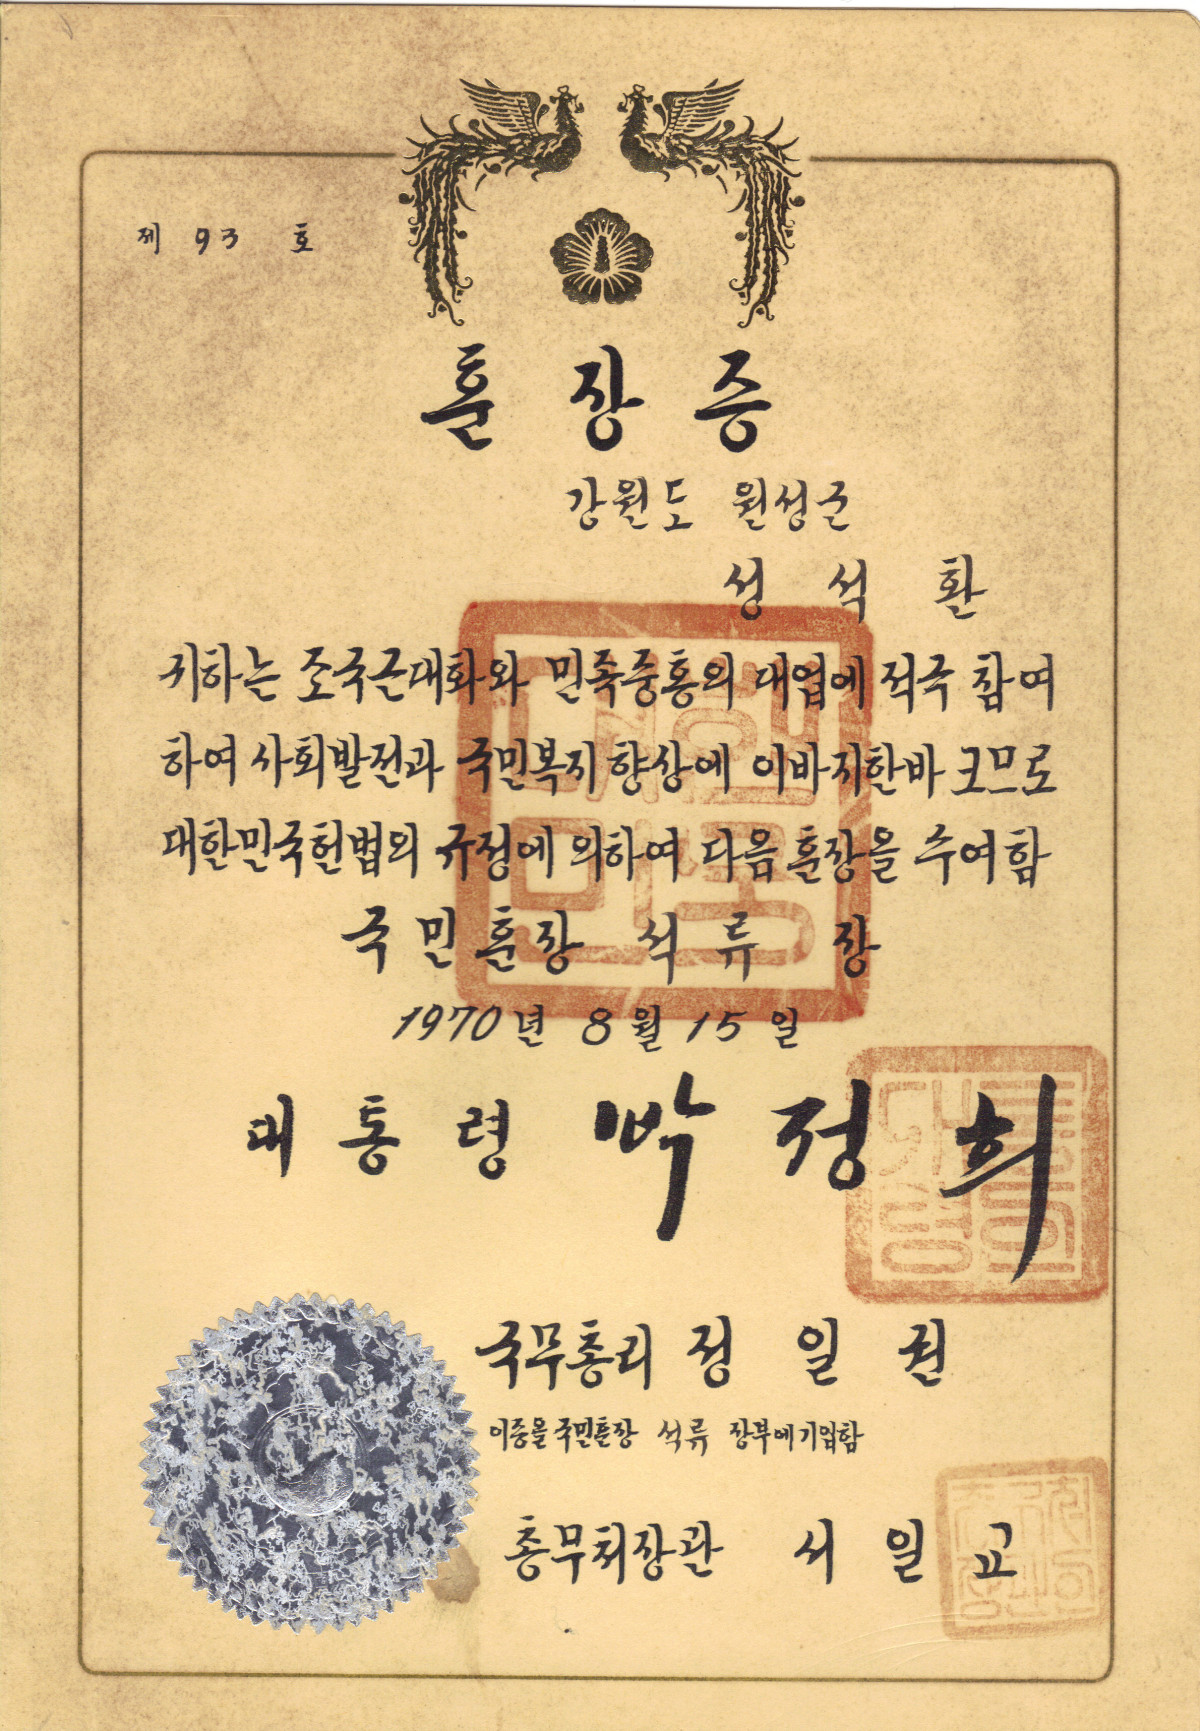 제 93 호
훈장증
강원도 원성군
성석환
귀하는 조국근대화와 민족중흥의 대업에 적극 참여
하여 사회발전과 국민복지 향상에 이바지한바 크므로
대한민국헌법의 규정에 의하여 다음 훈장을 수여함
국민훈장 석류장
1970년 8월 15일
대통령 박정희
국무총리 정일권
이증을 국민훈장 석류 장부에 기입함
총무처장관 서일교